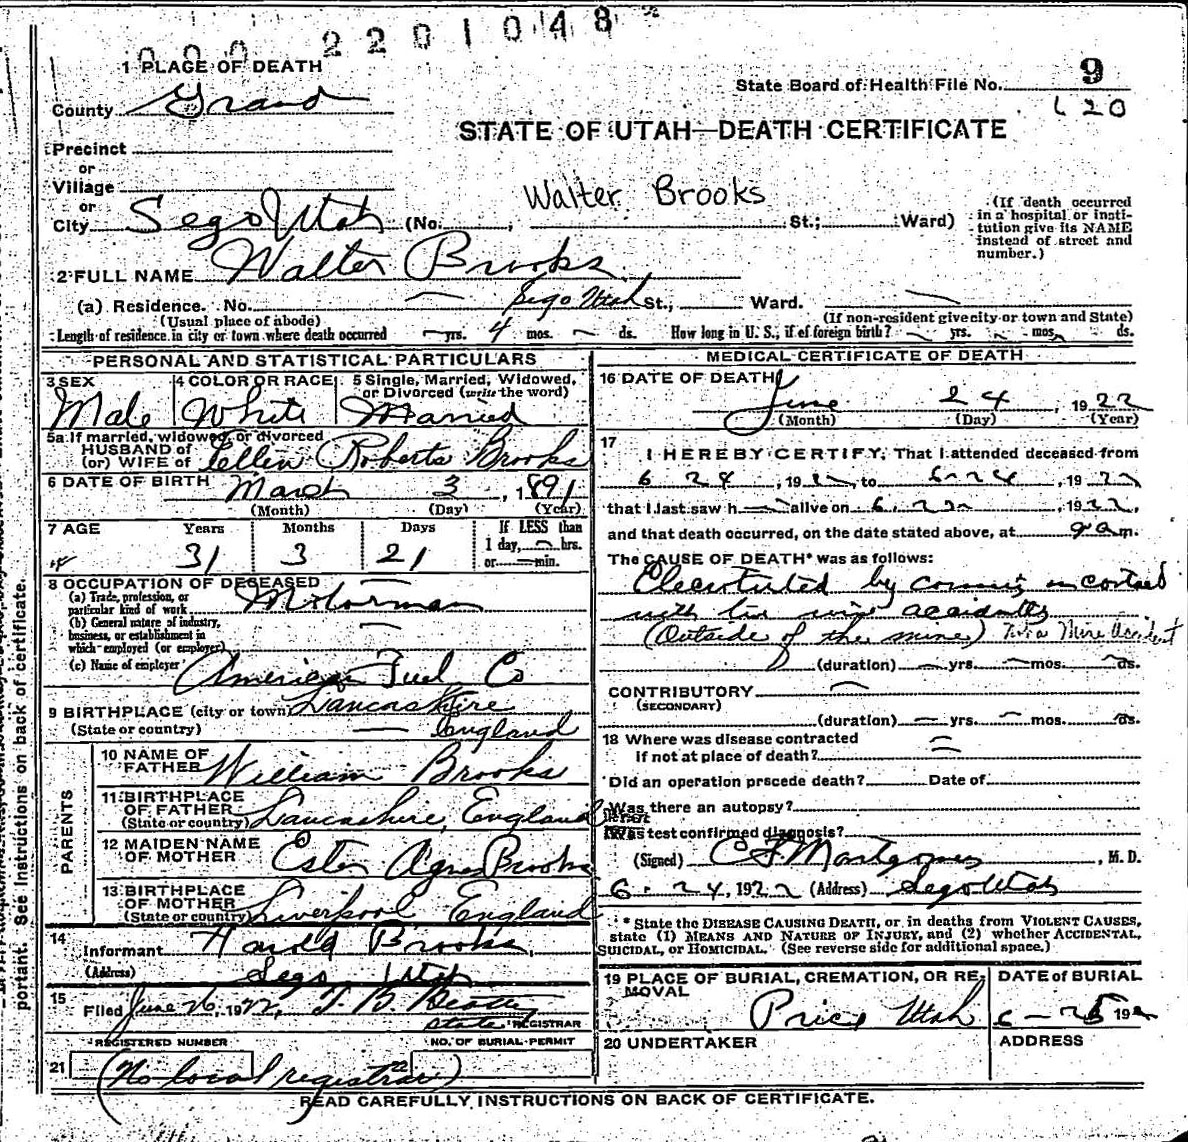 000 2201048
1 PLACE OF DEATH
County Grand
State Board of Health File No. 9
620
STATE OF UTAH—DEATH CERTIFICATE
Precinct
or
Village
or
City Sego Utah (No. , St.; Ward)
Walter Brooks
(If death occurred in a hospital or insti-
tution give its NAME
instead of street and
number.)
2 FULL NAME Walter Brooks
(a) Residence. No. Sego Utah St., Ward.
(Usual place of abode)
(If non-resident give city or town and State)
Length of residence in city or town where death occurred — yrs. 4 mos. — ds. How long in U. S., if of foreign birth? — yrs. — mos. ds.
PERSONAL AND STATISTICAL PARTICULARS
3 SEX
Male
4 COLOR OR RACE
White
5 Single, Married, Widowed,
or Divorced (write the word)
Married
5a If married, widowed, or divorced
HUSBAND of
(or) WIFE of Ellen Roberts Brooks
6 DATE OF BIRTH March 3, 1891
(Month) (Day) (Year)
7 AGE Years Months Days If LESS than
31 3 21 1 day, — hrs.
or — min.
8 OCCUPATION OF DECEASED
(a) Trade, profession, or
particular kind of work Motorman
(b) General nature of industry,
business, or establishment in
which employed (or employer)
(c) Name of employer American Fuel Co
9 BIRTHPLACE (city or town) Lancashire
(State or country) — England
PARENTS
10 NAME OF
FATHER William Brooks
11 BIRTHPLACE
OF FATHER
(State or country) Lancashire, England
12 MAIDEN NAME
OF MOTHER Ester Agnes Brooks
13 BIRTHPLACE
OF MOTHER
(State or country) Liverpool England
14
Informant Harold Brooks,
(Address) Sego Utah
15
Filed June 26, 1922, T. B.
State REGISTRAR
REGISTERED NUMBER NO. OF BURIAL PERMIT
21 22
(No local registrar)
MEDICAL CERTIFICATE OF DEATH
16 DATE OF DEATH
June 24, 1922
(Month) (Day) (Year)
17
I HEREBY CERTIFY, That I attended deceased from
6 24, 1922 to 6-24, 1922
that I last saw h— alive on 6. , 1922,
and that death occurred, on the date stated above, at 9 a m.
The CAUSE OF DEATH* was as follows:
Electrocuted by coming in contact
with live wire accidently
(Outside of the mine) Mine Accident
(duration) — yrs. — mos. — ds.
CONTRIBUTORY —
(SECONDARY)
(duration) — yrs. — mos. — ds.
18 Where was disease contracted
if not at place of death?
Did an operation precede death? Date of
Was there an autopsy?
test confirmed diagnosis?
(Signed) , M. D.
6-24, 1922 (Address) Sego Utah
* State the DISEASE CAUSING DEATH, or in deaths from VIOLENT CAUSES,
state (1) MEANS AND NATURE OF INJURY, and (2) whether ACCIDENTAL,
SUICIDAL, or HOMICIDAL. (See reverse side for additional space.)
19 PLACE OF BURIAL, CREMATION, OR RE-
MOVAL
Price Utah
DATE of BURIAL
6-25 1922
20 UNDERTAKER
ADDRESS
READ CAREFULLY INSTRUCTIONS ON BACK OF CERTIFICATE.
portant. See instructions on back of certificate.